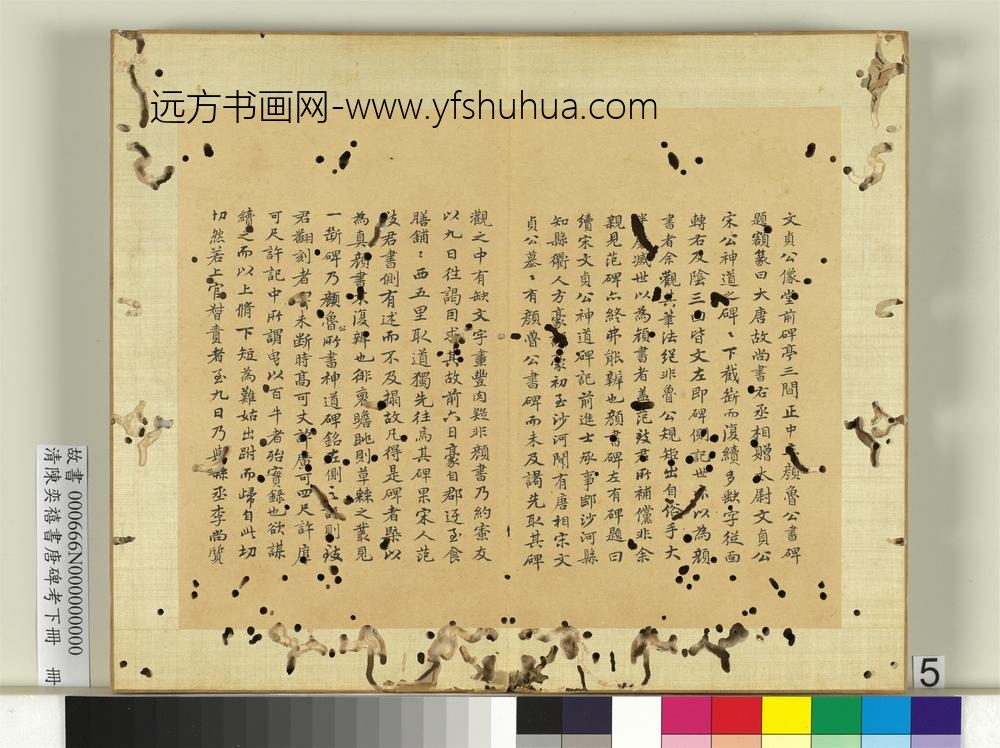 远方书画网-www.yfshuhua.com
文貞公像堂前碑亭三間正中顏魯公書碑
題額篆曰大唐故尚書右丞相贈太尉文貞公
宋公神道之碑〻下截斷而復續多缺字從面
轉右及陰三面皆文左即碑側記世亦以為顏
書者余觀其筆法絕非魯公規矩出自俗手大
磨滅世以為顏書者蓋范致君所補儻非余
親見范碑亦終弗能辨也顏書碑左有碑題曰
續宋文貞公神道碑記前進士承事郎沙河縣
知縣衢人方豪豪初至沙河聞有唐相宋文
貞公墓〻有顏魯公書碑而未及謁先取其碑
觀之中有缺文字畫豐肉疑非顏書乃約密友
以九日往謁因求其故前六日豪自郡迓至食
膳舖〻西五里取道獨先往焉其碑果宋人范
致君書側有述而不及搨故凡得是碑者槩以
為真顏書不復辨也徘徊瞻眺則草棘之叢見
一斷碑乃顏魯公所書神道碑銘左側之記則致
君翻刻者也未斷時高可丈許廣可四尺許厚
可尺許記中所謂曳以百牛者殆實錄也欲謀
續之而以上脩下短為難姑出跗而歸自此切
切然若上官督責者至九日乃與縣丞李尚質
5
故書 000666N000000000
清陳奕禧書唐碑考下冊 冊